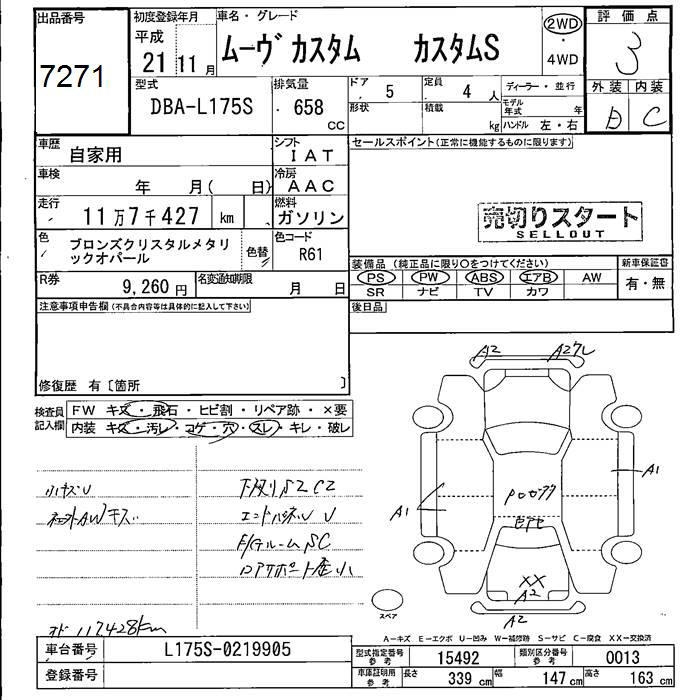 出品番号
7271
初度登録年月
平成
21 11月
車名・グレード
ムーヴ カスタム カスタムS
2WD
・
4WD
評価点
3
外装 内装
C
型式
DBA-L175S
排気量
658
CC
ドア
5
定員
4 人
形状
積載
kg
ディーラー・並行
モデル年式 年
ハンドル 左・右
車歴
自家用
シフト
IAT
車検
年 月( 日)
冷房
AAC
走行
11万7千427 km
燃料
ガソリン
色
ブロンズクリスタルメタリックオパール
色替
色コード
R61
R券
9,260円
名変通知期限
月 日
セールスポイント(正常に機能するものに限ります)
売切りスタート
SELLOUT
装備品(純正品に限り○をつけてください)
新車保証書
PS PW ABS エアB AW
SR ナビ TV カワ
有・無
後日品
注意事項申告欄(不具合内容等は具体的に記入して下さい)
修復歴 有〔箇所 〕
検査員記入欄
FW キズ・飛石・ヒビ割・リペア跡・×要
内装 キズ・汚レ・コゲ・穴・スレ・キレ・破レ
小キズU
下廻りS2C2
エンドパネルU
117428km
A2
A1
A1
XX
A2
A2
スペア
A-キズ E-エクボ U-凹み W-補修跡 S-サビ C-腐食 XX-交換済
車台番号
L175S-0219905
登録番号
型式指定番号
参考
15492
類別区分番号
参考
0013
車庫証明用
参考
長さ
339 cm
幅
147 cm
高さ
163 cm